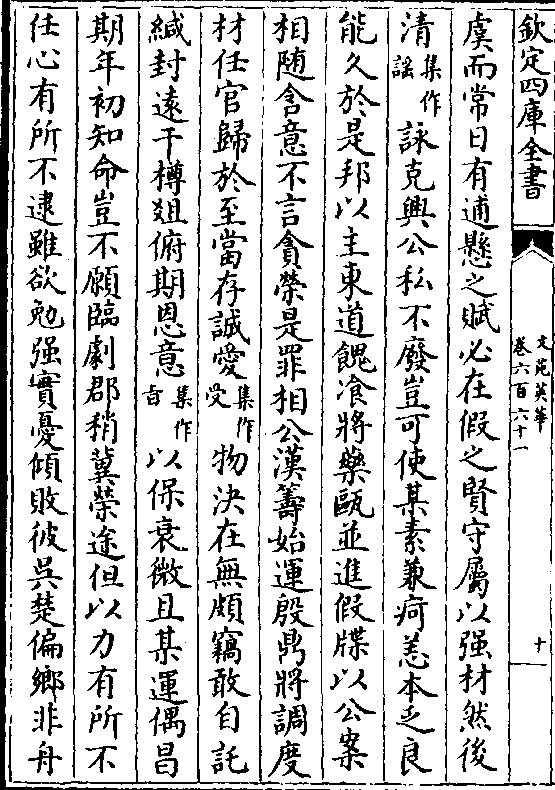 欽定四庫全書
文苑英華
卷六百六十一
十
虞而常日有逋懸之賦必在假之賢守屬以强材然後
清集作謡詠克興公私不廢豈可使某素兼疴恙本乏良
能久於是邦以主東道餽飡將藥甌並進假牒以公案
相随含意不言貪榮是罪相公漢籌始運殷鼎將調度
材任官歸於至當存誠愛集作受物決在無頗竊敢自託
緘封遠干樽俎俯期恩意集作旨以保衰微且某運偶昌
期年初知命豈不願臨劇郡稍冀榮途但以力有所不
任心有所不逮雖欲勉强實憂傾敗彼呉楚偏鄉非舟